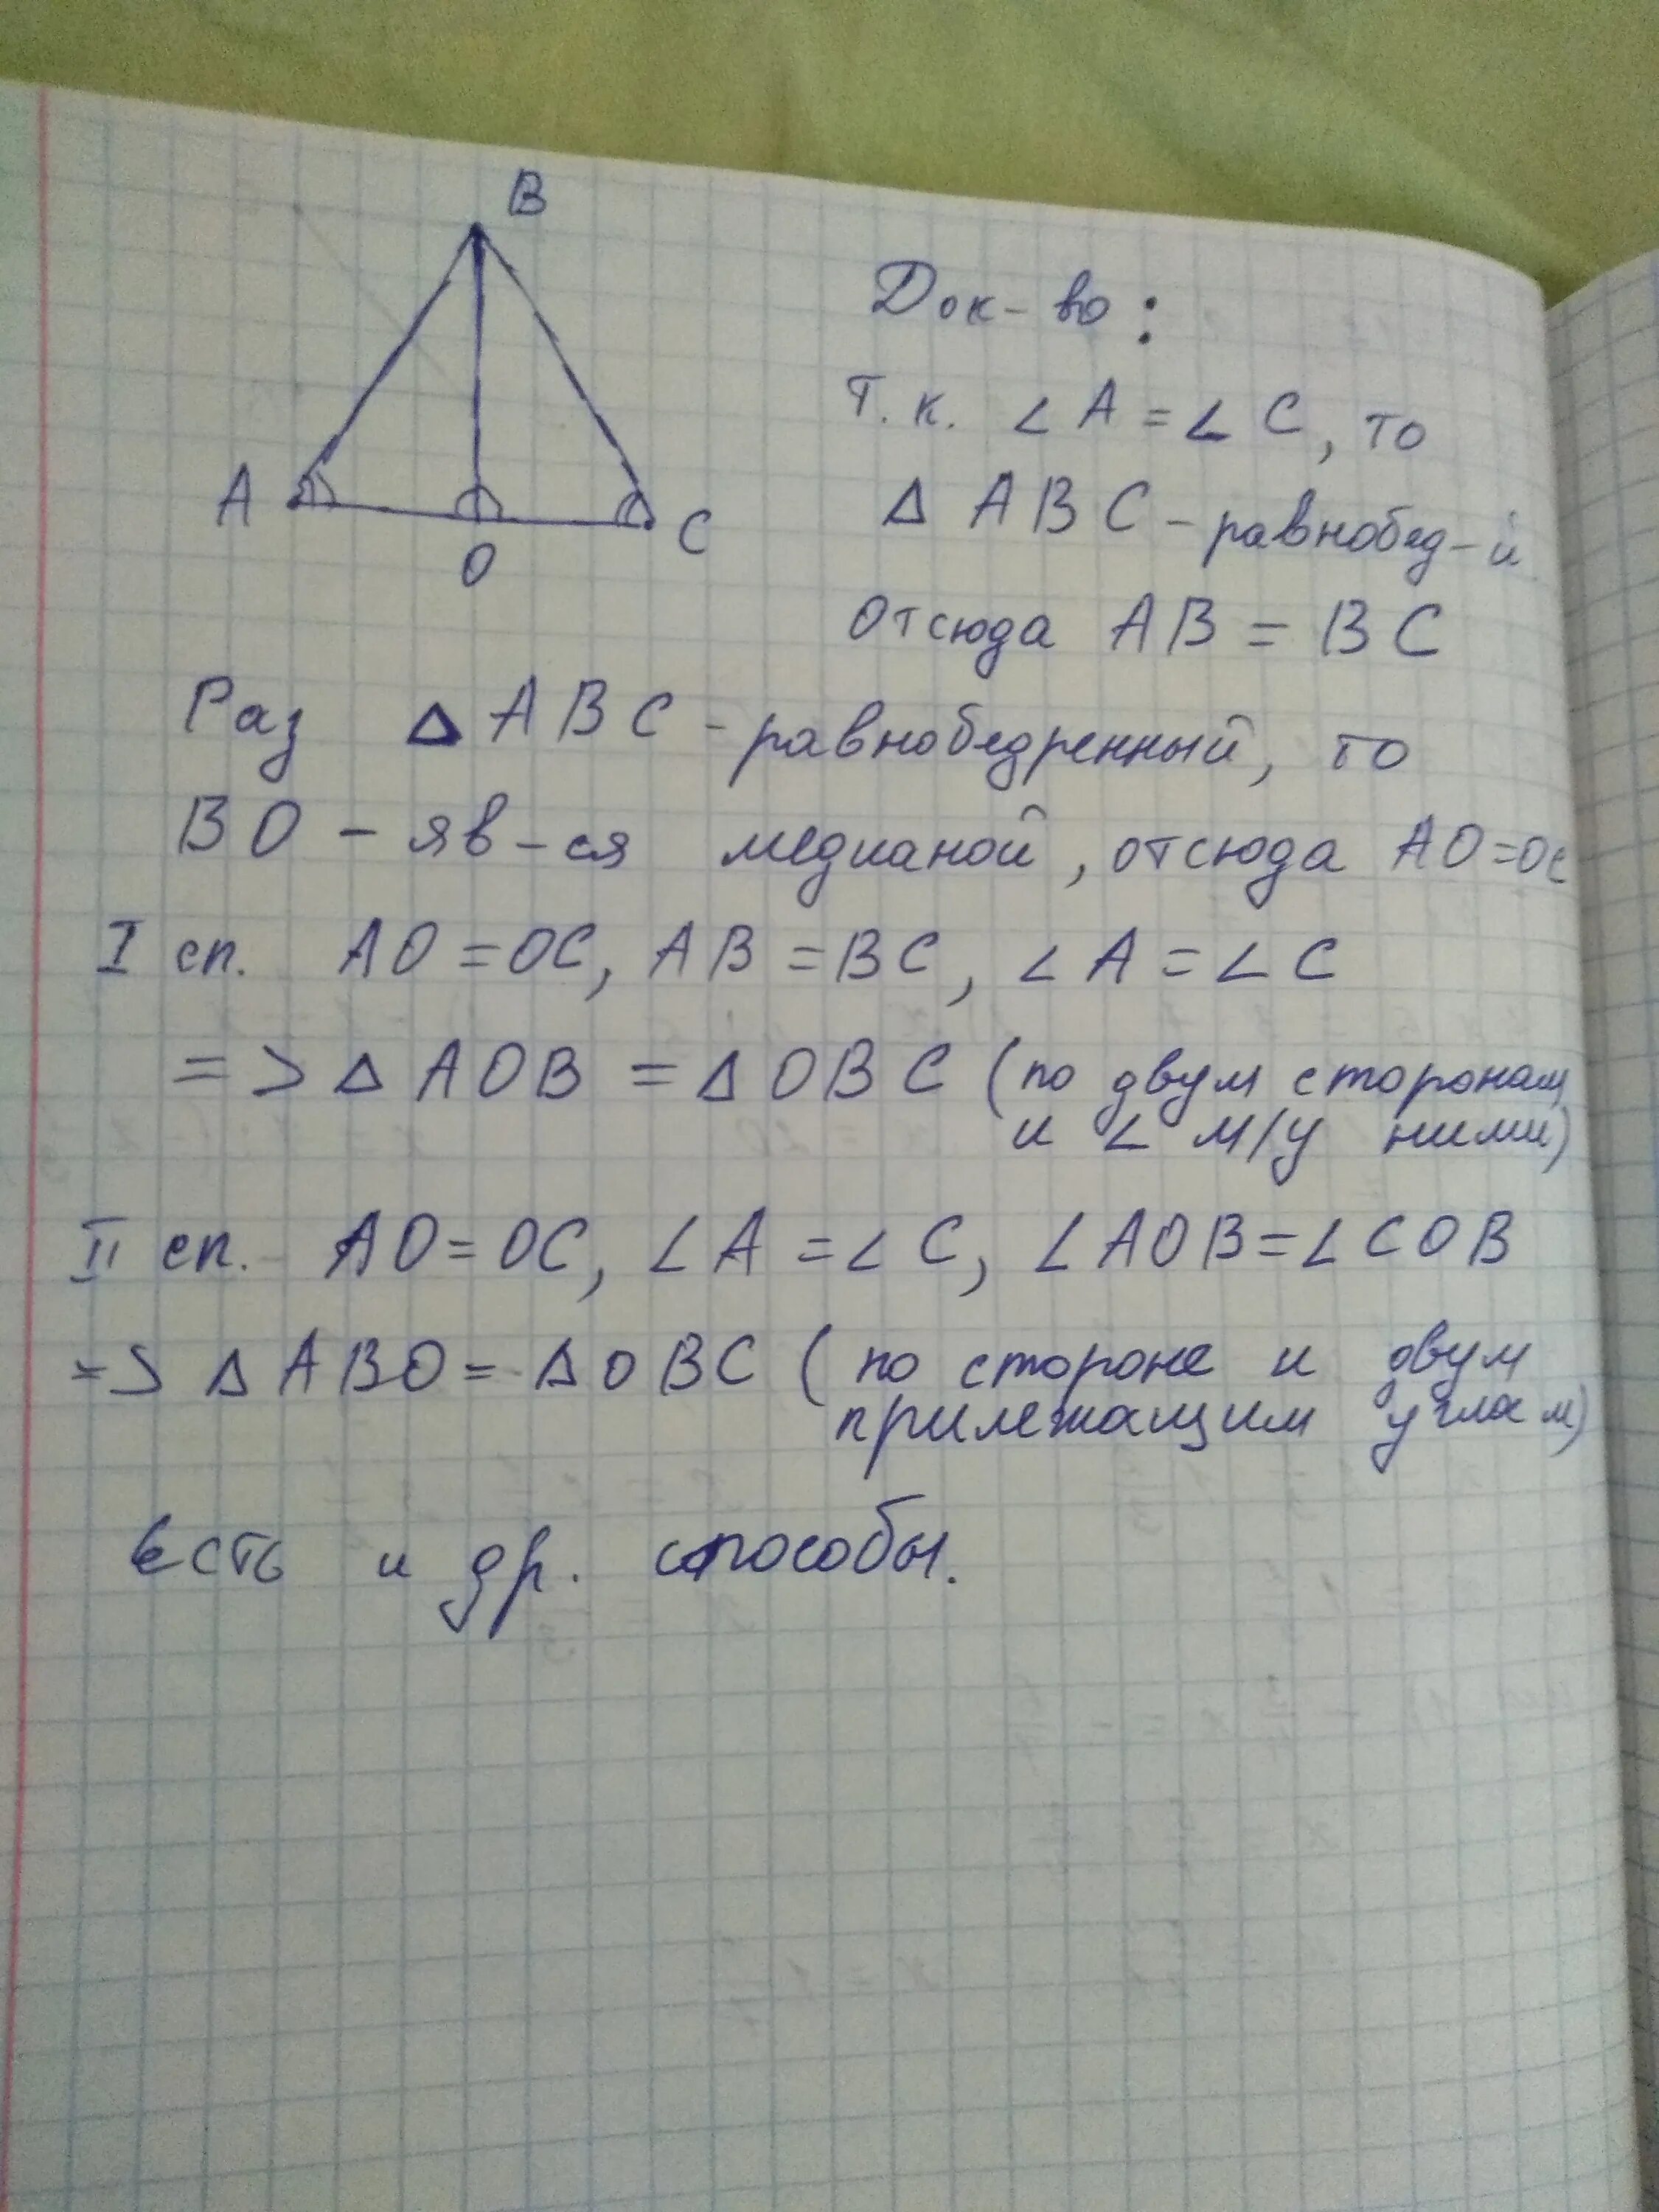 B
A
O
C
Док-во:
Т.к. ∠A=∠C, то
Δ ABC-равнобед-й
Отсюда AB=BC
Раз ΔABC-равнобедренный, то
BO-яв-ся медианой, отсюда AO=OC
I сп. AO=OC, AB=BC, ∠A=∠C
=> ΔAOB=ΔOBC (по двум сторонам
и ∠ м/у ними)
II сп. AO=OC, ∠A=∠C, ∠AOB=∠COB
=> ΔABO=ΔOBC (по стороне и двум
прилежащим углам)
Есть и др. способы.